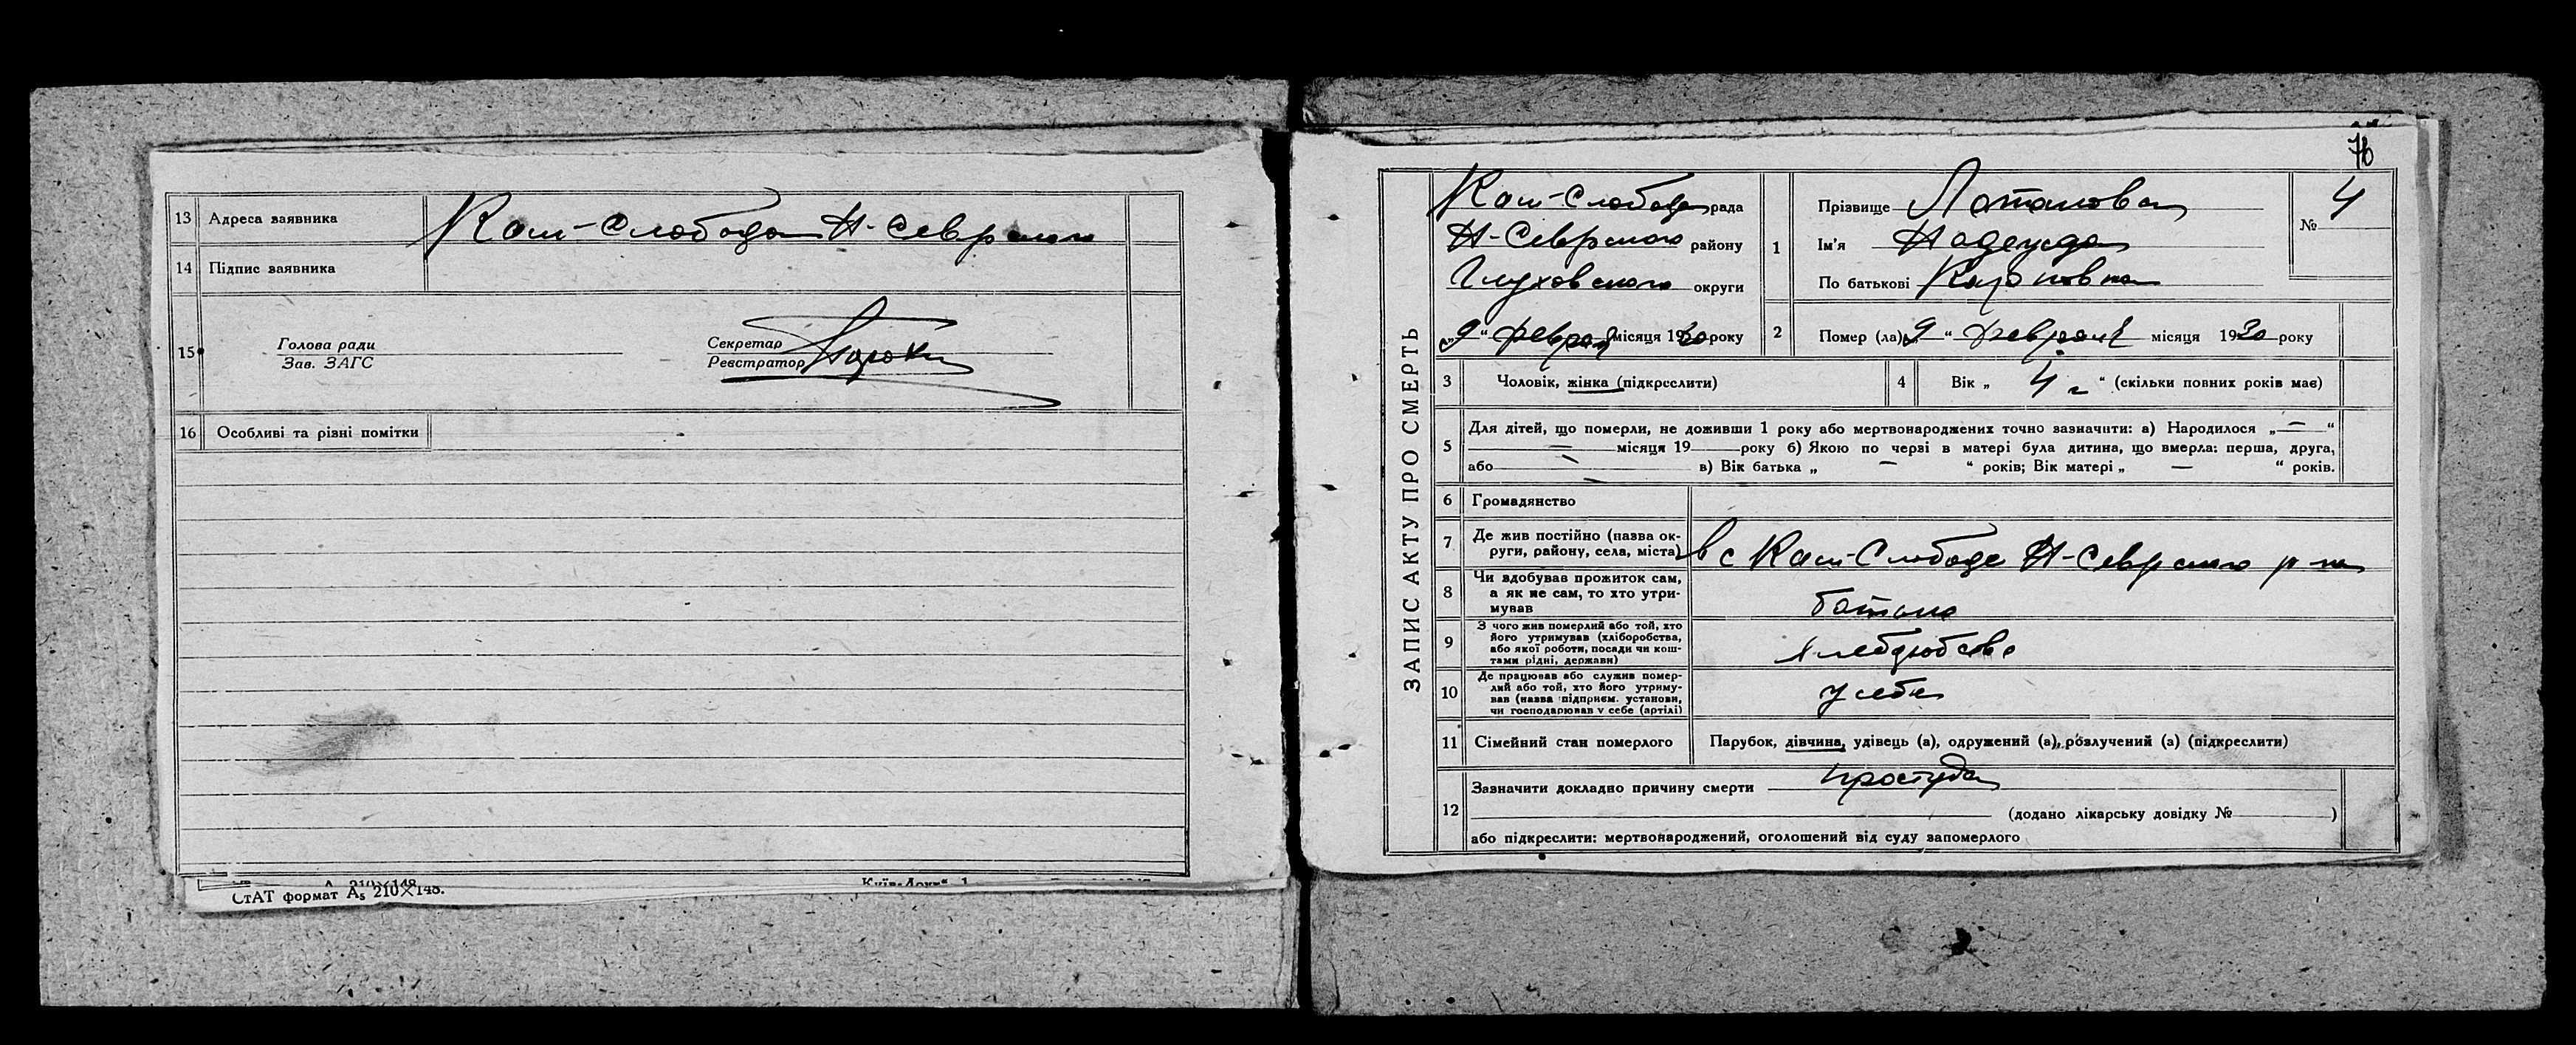 13 Адреса заявника Кам-Слобода Н-Севрского
14 Підпис заявника
15 Голова ради
Зав. ЗАГС
Секретар
Реєстратор
16 Особливі та різні помітки
СтАТ формат А5 210×148.
76
ЗАПИС АКТУ ПРО СМЕРТЬ
Кам-Слобода рада
Н-Севрского району
Глуховского округи
„9“ февраля місяця 1930 року
1 Прізвище Потапова
Ім'я Надежда
По батькові Карповна
№ 4
2 Помер (ла) „9“ февраля місяця 1930 року
3 Чоловік, жінка (підкреслити)
4 Вік „ 4 г “ (скільки повних років має)
5 Для дітей, що померли, не доживши 1 року або мертвонароджених точно зазначити: а) Народилося „ — “
— місяця 19 року б) Якою по черзі в матері була дитина, що вмерла: перша, друга,
або — в) Вік батька „ — “ років; Вік матері „ — “ років.
6 Громадянство
7 Де жив постійно (назва ок-
руги, району, села, міста) в с Кам-Слободе Н-Севрского р-на
8 Чи здобував прожиток сам,
а як не сам, то хто утри-
мував батько
9 З чого жив померлий або той, хто
його утримував (хліборобства,
або якої роботи, посади чи кош-
тами рідні, держави)
10 Де працював або служив помер-
лий або той, хто його утриму-
вав (назва підприєм. установи,
чи господарював у себе (артілі) у себя
11 Сімейний стан померлого Парубок, дівчина, удівець (а), одружений (а), розлучений (а) (підкреслити)
12 Зазначити докладно причину смерти простуда
(додано лікарську довідку № )
або підкреслити: мертвонароджений, оголошений від суду запомерлого